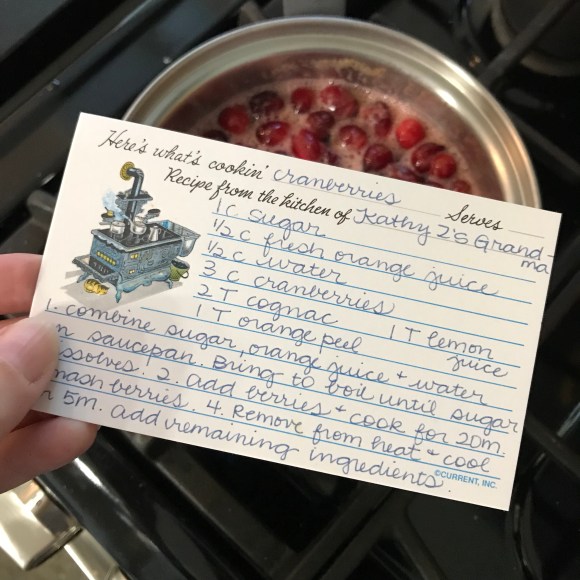 Here's what's cookin' cranberries Serves
Recipe from the kitchen of Kathy Z's Grand-
ma
1 c sugar
1/2 c fresh orange juice
1/2 c water
3 c cranberries
2 T cognac 1 T lemon
1 T orange peel juice
1. combine sugar, orange juice + water
saucepan. Bring to boil until sugar
2. add berries + cook for 20m.
berries. 4. Remove from heat + cool
5m. add remaining ingredients.
©CURRENT, INC.